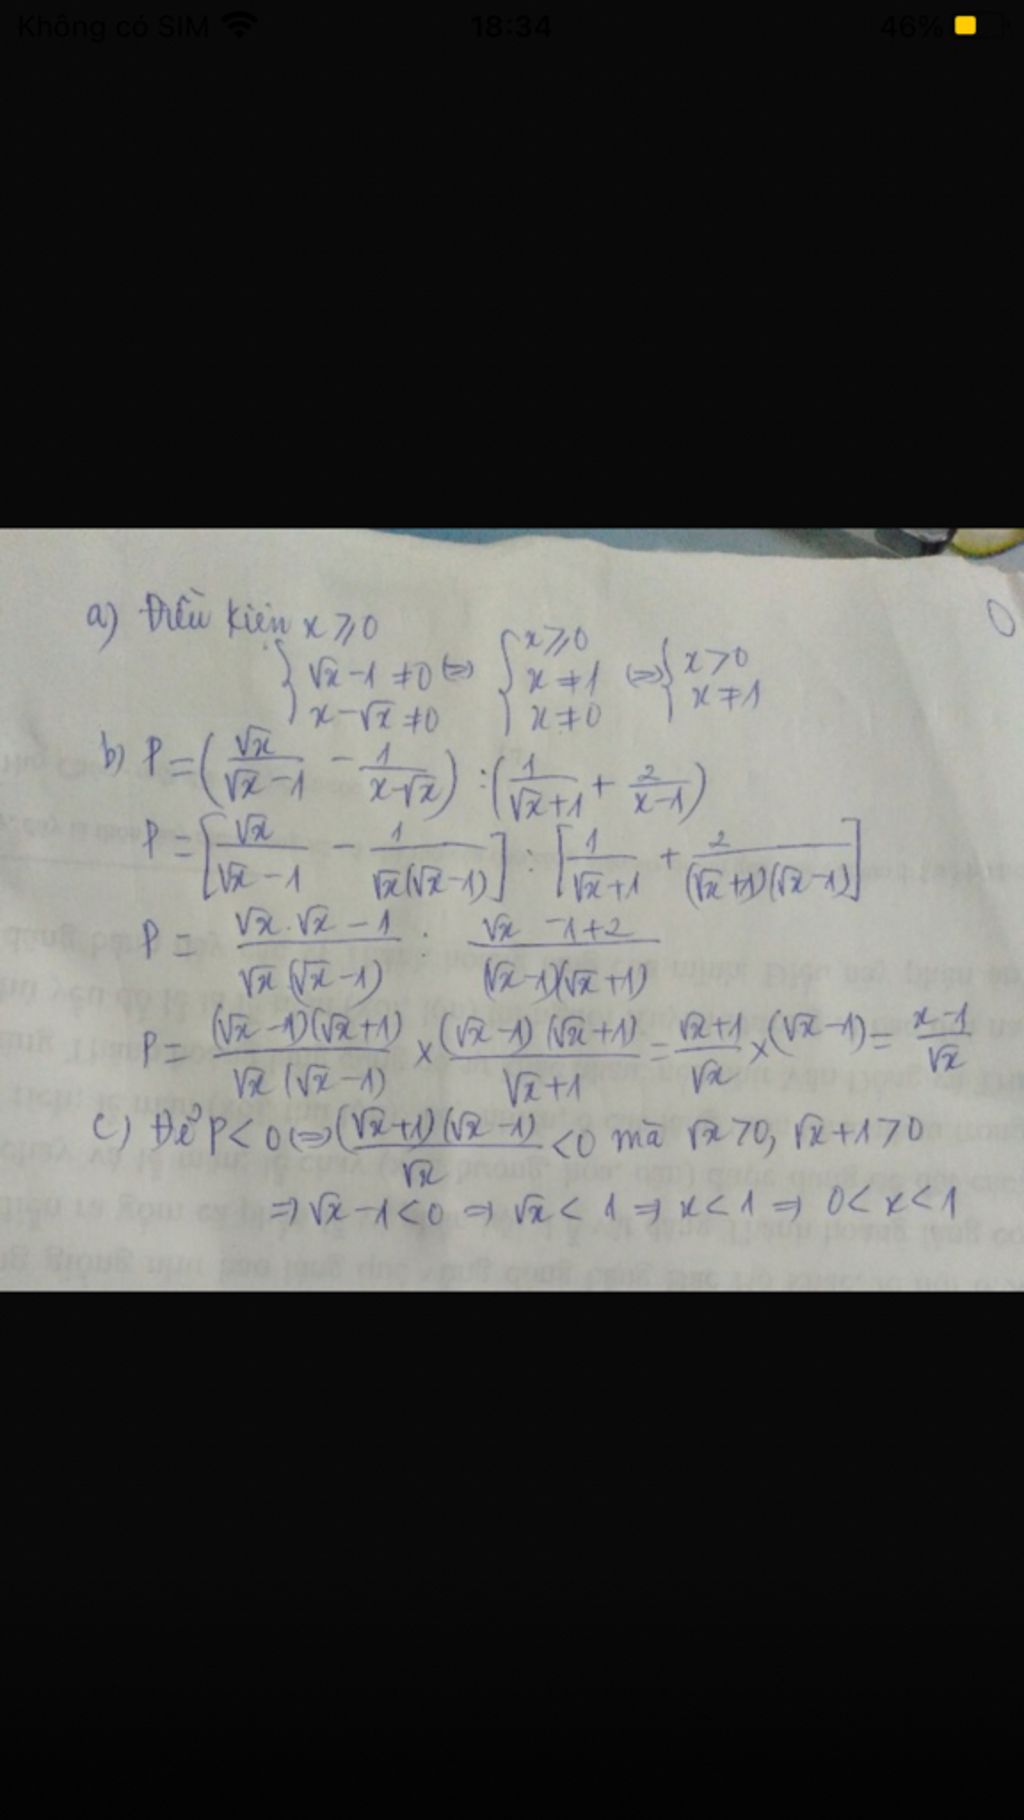 Không có SIM 18:34 46%
a) Điều kiện x ⩾ 0
{ √x - 1 ≠ 0 ⇔ { x ⩾ 0 x ≠ 1 x ≠ 0 ⇔ { x > 0 x ≠ 1
x - √x ≠ 0
b) P = (√x/(√x - 1) - 1/(x - √x)) : (1/(√x + 1) + 2/(x - 1))
P = [√x/(√x - 1) - 1/(√x(√x - 1))] : [1/(√x + 1) + 2/((√x + 1)(√x - 1))]
P = (√x . √x - 1)/(√x(√x - 1)) : (√x - 1 + 2)/((√x - 1)(√x + 1))
P = ((√x - 1)(√x + 1))/(√x(√x - 1)) × ((√x - 1)(√x + 1))/(√x + 1) = (√x + 1)/√x × (√x - 1) = (x - 1)/√x
c) Để P < 0 ⇔ ((√x + 1)(√x - 1))/√x < 0 mà √x > 0, √x + 1 > 0
⇒ √x - 1 < 0 ⇒ √x < 1 ⇒ x < 1 ⇒ 0 < x < 1